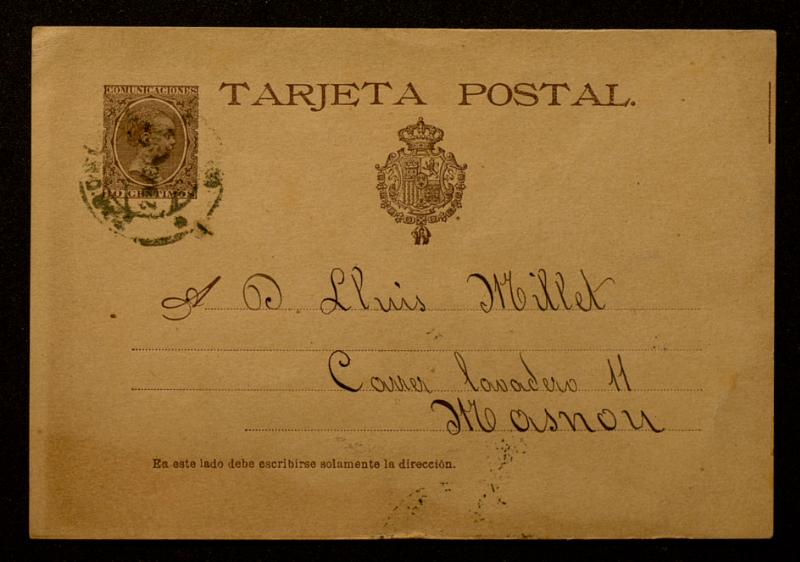 COMUNICACIONES
TARJETA POSTAL.
10 CENTIMOS
A D. Lluis Millet
Carrer lavadero 11
Masnou
En este lado debe escribirse solamente la dirección.